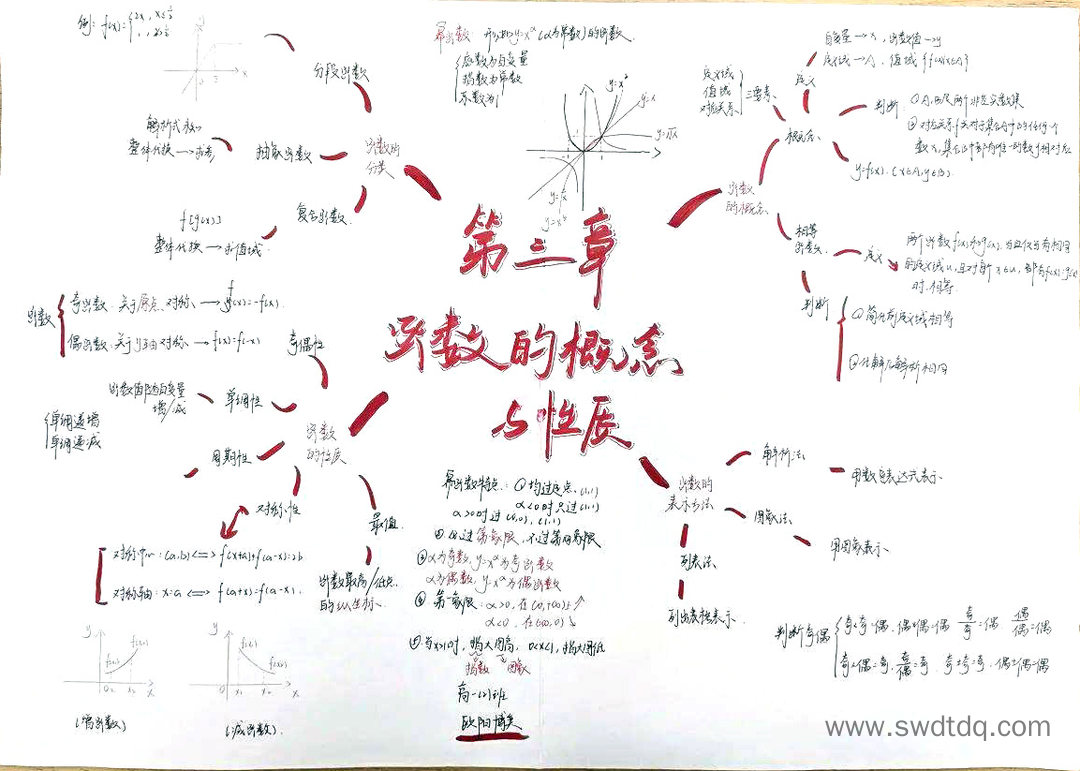 第三章
函数的概念
与性质
函数的概念
概念
定义
自变量→x, 函数值→y
定义域→A, 值域{f(x)|x∈A}
三要素
定义域
值域
对应关系
判断
①A,B是两个非空实数集
②对应关系f, 对于集合A中的任何一个
数x, 集合B中都有唯一的数y相对应
y=f(x), (x∈A,y∈B).
相等函数
定义
两个函数f(x)和g(x), 当且仅当有相同
的定义域U, 且对每个x∈U, 都有f(x)=g(x)
时, 相等
判断
①定义域相等
函数的
表示方法
解析法
用数学表达式表示
图象法
用图象表示
列表法
列出表格表示.
函数的
分类
分段函数
例: f(x)={2x, x≤½
抽象函数
整体代换→
复合函数
f[g(x)]
整体代换→求值域.
函数
的性质
奇偶性
函数
奇函数. 关于原点, 对称.→f(-x)=-f(x).
偶函数. 关于y轴对称.→f(x)=f(-x)
单调性
函数值随自变量
增/减
单调递增
单调递减
周期性
对称性
对称中心: (a,b)<=>f(x+a)+f(a-x)=2b
对称轴: x=a<=>f(a+x)=f(a-x).
最值
函数最高/低点
的纵坐标.
y
f(x₁)
f(x₂)
x₁
x₂
x
(增函数)
y
f(x₁)
f(x₂)
x₁
x₂
x
(减函数).
幂函数: 形如y=x^α(α为常数)的函数.
底数为自变量
指数为常数
系数为1
y=x²
y=x
y=√x
幂函数特点: ①均过定点, (1,1)
α<0时只过(1,1)
α>0时过(0,0), (1,1)
必过第一象限, 不过第四象限
③α为奇数, y=x^α为奇函数
α为偶数, y=x^α为偶函数
④第一象限: α>0, 在(0,+∞)↗
⑤当x>1时, 指大图高, 0<x<1, 指大图低
指数
图象
高一(2)班
欧阳博文
判断奇偶
奇±偶=奇
www.swdtdq.com